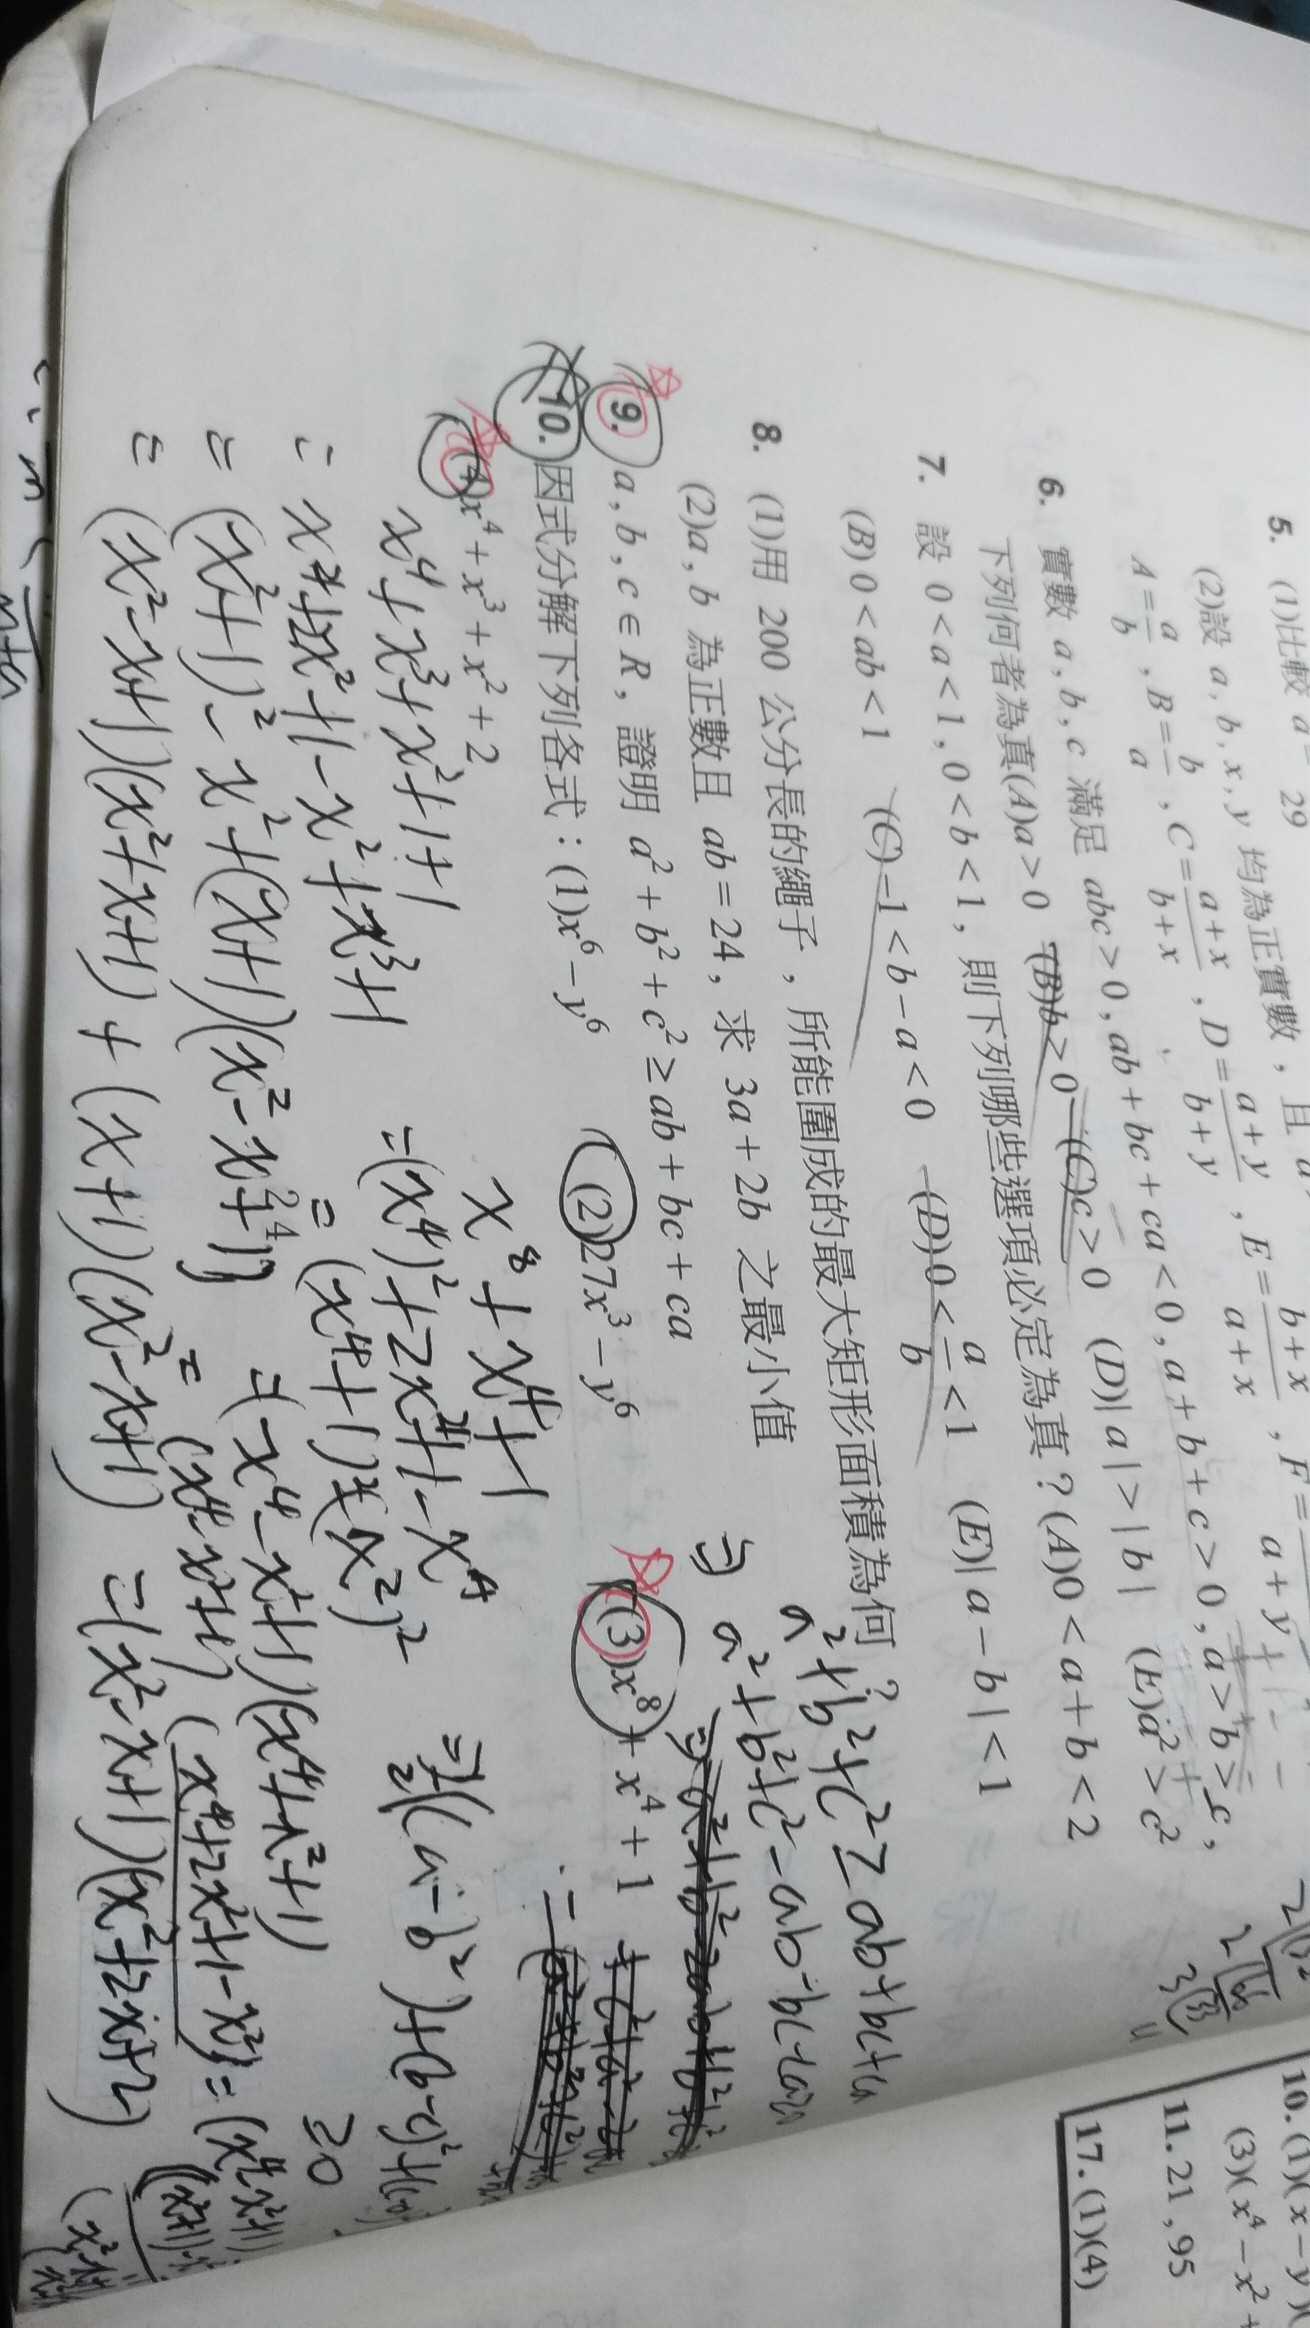 5. (1)比較 a = 29
(2)設 a, b, x, y 均為正實數，且 a
A = a/b , B = b/a , C = a+x/b+x , D = a+y/b+y , E = b+x/a+x , F =
a+y
6. 實數 a, b, c 滿足 abc > 0, ab + bc + ca < 0, a + b + c > 0, a > b > c,
下列何者為真(A)a > 0 (B)b > 0 (C)c > 0 (D)|a| > |b| (E)a² > c²
7. 設 0 < a < 1, 0 < b < 1，則下列哪些選項必定為真？(A)0 < a + b < 2
(B) 0 < ab < 1 (C) -1 < b - a < 0 (D) 0 < a/b < 1 (E)|a - b| < 1
8. (1)用 200 公分長的繩子，所能圍成的最大矩形面積為何？
(2)a, b 為正數且 ab = 24, 求 3a + 2b 之最小值
9. a, b, c ∈ R, 證明 a² + b² + c² ≥ ab + bc + ca
a² + b² + c² ≥ ab + bc + ca
⇒ a² + b² + c² - ab - bc - ca ≥
= 1/2 (a - b²) + (b - c)² +
≥ 0
10. 因式分解下列各式：(1)x⁶ - y⁶ (2)27x³ - y⁶ (3)x⁸ + x⁴ + 1
(4)x⁴ + x³ + x² + 2
x⁴ + x³ + x² + 1 + 1
= x⁴ + 2x² + 1 - x² + x³ + 1
= (x² + 1)² - x² + (x + 1)(x² - x + 1)
= (x² - x + 1)(x² + x + 1) + (x + 1)(x² - x + 1) = (x² - x + 1)(x² + 2x + 2)
x⁸ + x⁴ + 1
= (x⁴)² + 2x⁴ + 1 - x⁴
= (x⁴ + 1)² - (x²)²
= (x⁴ - x² + 1)(x⁴ + x² + 1)
= (x⁴ - x² + 1)(x⁴ + 2x² + 1 - x²) = (x⁴ - x² + 1)
10. (1)(x - y)(
(3)(x⁴ - x² +
11. 21, 95
17. (1)(4)